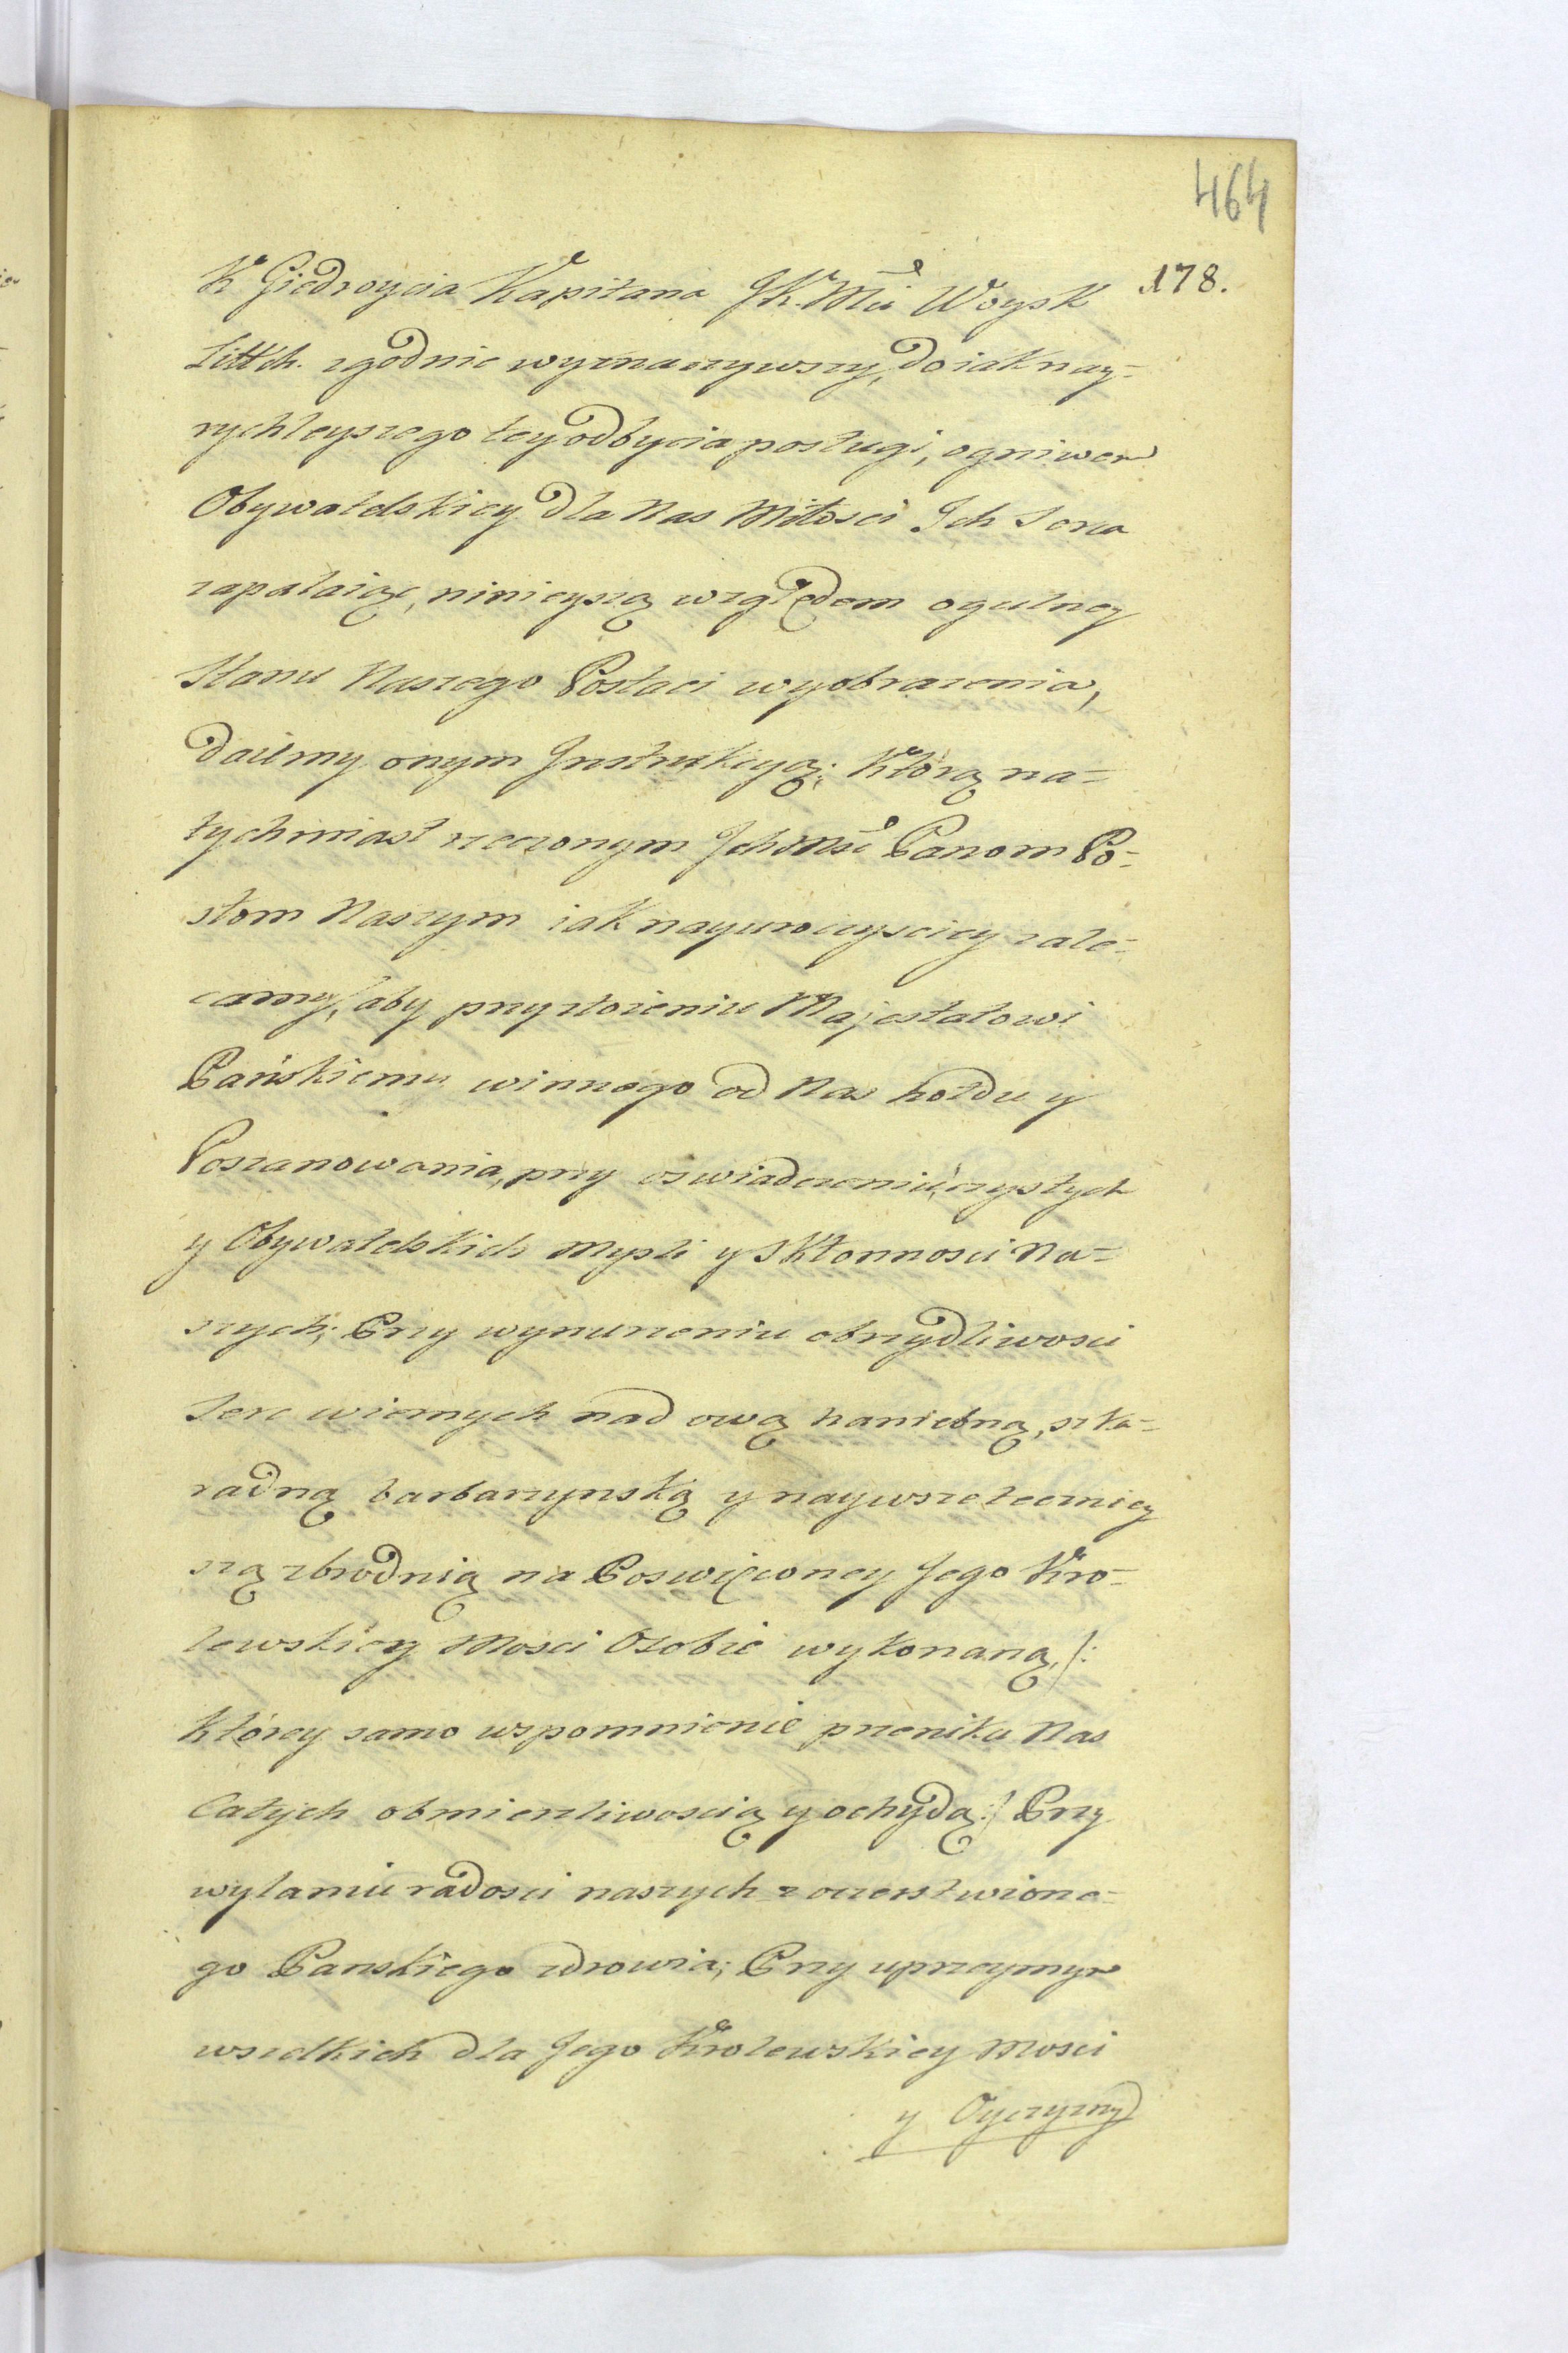 464
178.
K Giedroycia Kapitana JK. Mći Woysk
Littch. zgodnie wyznaczywszy, do iak nay-
rychleyszego tey odbycia posługi, ogniwem
Obywatelskiey dla Nas Miłosci Ich Serca
zapalaiąc, ninieyszą względem ogulney
Stanu Naszego Postaci wyobrazenia,
daliśmy onym Instrukcyą; Którą na-
tychmiast rzeczonym Ich Mśc Panom Po-
słom Naszym iak nayuroczysciey zale-
camy, aby przy złożeniu Majestatowi
Pańskiemu winnego od Nas hołdu y
Poszanowania, przy oswiadczeniu czystych
y Obywatelskich Mysli y Skłonnosci Na-
szych; Przy wynurzeniu obrzydliwosci
Serc wiernych nad ową haniebną, szka-
radną barbarzynską y naywszeteczniey
szą zbrodnią na Poswięconey Jego Kro-
lewskiey Mosci Osobie wykonaną, /:
Którey samo wspomnienie przenika Nas
Całych obmierzliwoscią y ochydą :/ Przy
wylaniu radosci naszych z oczerstwione-
go Panskiego zdrowia; Przy uprzeymym
wszelkich dla Jego Krolewskiey Mosci
y Oyczyzny